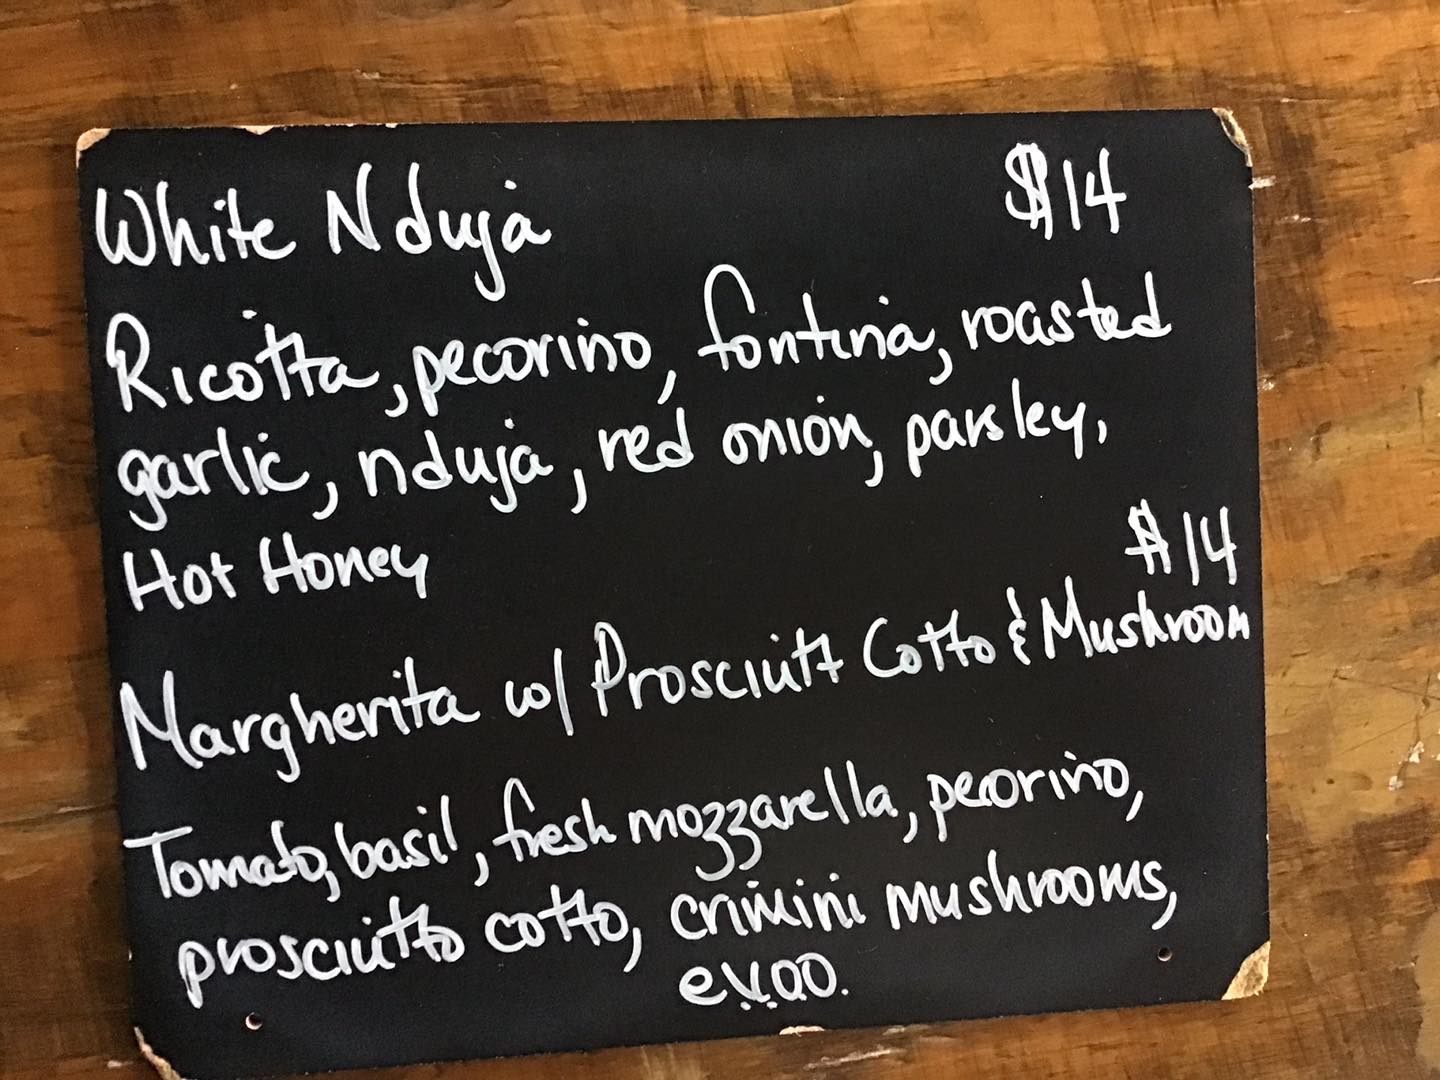 White Nduja $14
Ricotta, pecorino, fontina, roasted
garlic, nduja, red onion, parsley,
Hot Honey
$14
Margherita w/ Prosciutt Cotto & Mushroom
Tomato, basil, fresh mozzarella, pecorino,
prosciutto cotto, crimini mushrooms,
evoo.